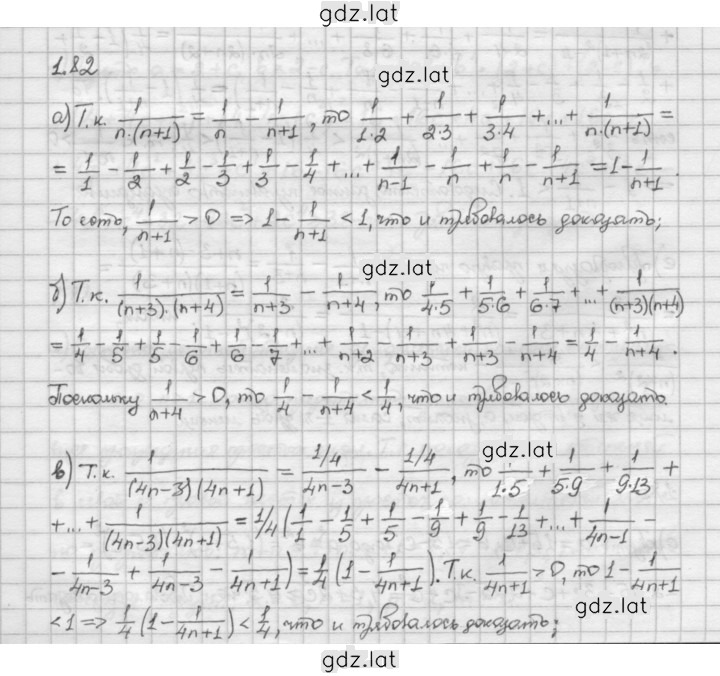 gdz.lat
1.82
gdz.lat
а) Т.к. 1/(n·(n+1)) = 1/n - 1/(n+1), то 1/(1·2) + 1/(2·3) + 1/(3·4) + ... + 1/(n·(n+1)) =
= 1/1 - 1/2 + 1/2 - 1/3 + 1/3 - 1/4 + ... + 1/(n-1) - 1/n + 1/n - 1/(n+1) = 1 - 1/(n+1).
То есть, 1/(n+1) > 0 => 1 - 1/(n+1) < 1, что и требовалось доказать;
gdz.lat
б) Т.к. 1/((n+3)·(n+4)) = 1/(n+3) - 1/(n+4), то 1/(4·5) + 1/(5·6) + 1/(6·7) + ... + 1/((n+3)(n+4))
= 1/4 - 1/5 + 1/5 - 1/6 + 1/6 - 1/7 + ... + 1/(n+2) - 1/(n+3) + 1/(n+3) - 1/(n+4) = 1/4 - 1/(n+4).
Поскольку 1/(n+4) > 0, то 1/4 - 1/(n+4) < 1/4, что и требовалось доказать.
gdz.lat
в) Т.к. 1/((4n-3)(4n+1)) = (1/4)/(4n-3) - (1/4)/(4n+1), то 1/(1·5) + 1/(5·9) + 1/(9·13) +
+ ... + 1/((4n-3)(4n+1)) = 1/4 (1/1 - 1/5 + 1/5 - 1/9 + 1/9 - 1/13 + ... + 1/(4n-1) -
- 1/(4n-3) + 1/(4n-3) - 1/(4n+1)) = 1/4 (1 - 1/(4n+1)). Т.к. 1/(4n+1) > 0, то 1 - 1/(4n+1)
gdz.lat
< 1 => 1/4 (1 - 1/(4n+1)) < 1/4, что и требовалось доказать;
gdz.lat